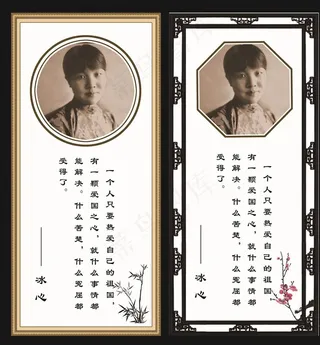 一个人只要热爱自己的祖国，
有一颗爱国之心，就什么事情都
能解决。什么苦楚，什么冤屈都
受得了。
——冰心
一个人只要热爱自己的祖国，
有一颗爱国之心，就什么事情都
能解决。什么苦楚，什么冤屈都
受得了。
——冰心